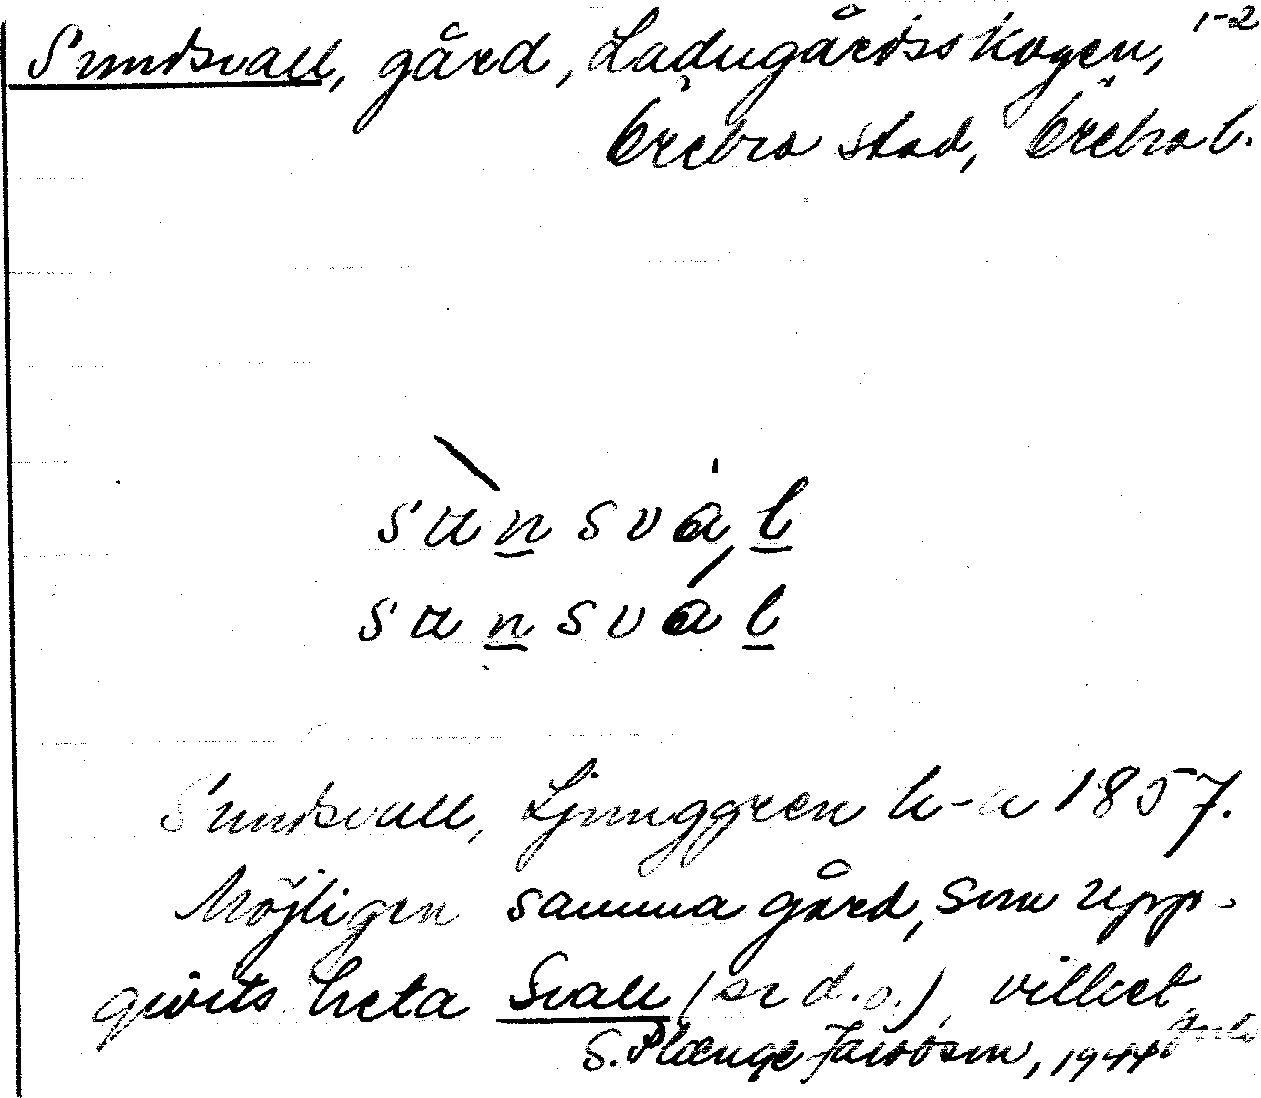 Sundsvall, gård, Ladugårdsskogen, 1-2
Örebro stad, Örebro l.
sunsvàl
sunsvál
Sundsvall, Ljunggren h-a 1857.
Möjligen samma gård, som upp-
givits heta Svall (se d.o.), vilket
S. Plænge Jacobson, 1944.